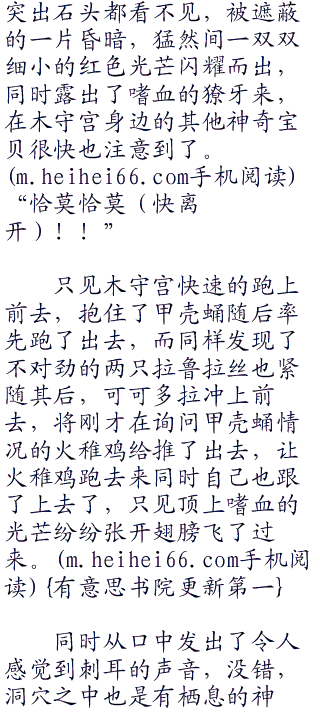 突出石头都看不见，被遮蔽
的一片昏暗，猛然间一双双
细小的红色光芒闪耀而出，
同时露出了嗜血的獠牙来，
在木守宫身边的其他神奇宝
贝很快也注意到了。
(m.heihei66.com手机阅读)
“恰莫恰莫（快离
开）！！”
只见木守宫快速的跑上
前去，抱住了甲壳蛹随后率
先跑了出去，而同样发现了
不对劲的两只拉鲁拉丝也紧
随其后，可可多拉冲上前
去，将刚才在询问甲壳蛹情
况的火稚鸡给推了出去，让
火稚鸡跑去来同时自己也跟
了上去了，只见顶上嗜血的
光芒纷纷张开翅膀飞了过
来。(m.heihei66.com手机阅
读){有意思书院更新第一}
同时从口中发出了令人
感觉到刺耳的声音，没错，
洞穴之中也是有栖息的神